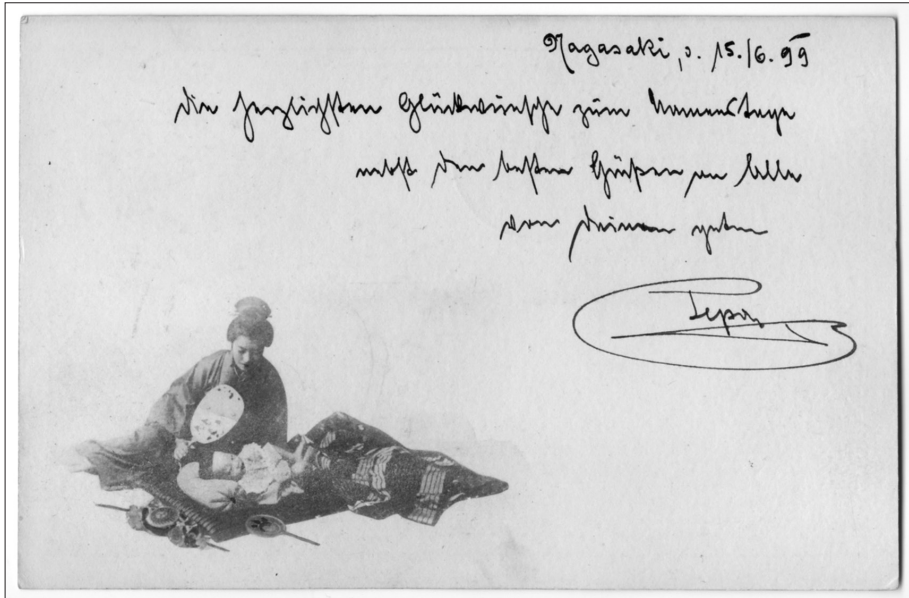 Nagasaki, d. 15./6. 99
die herzlichsten Glückwünsche zum Namenstage
nebst den besten Grüßen an Alle
von Deinem guten